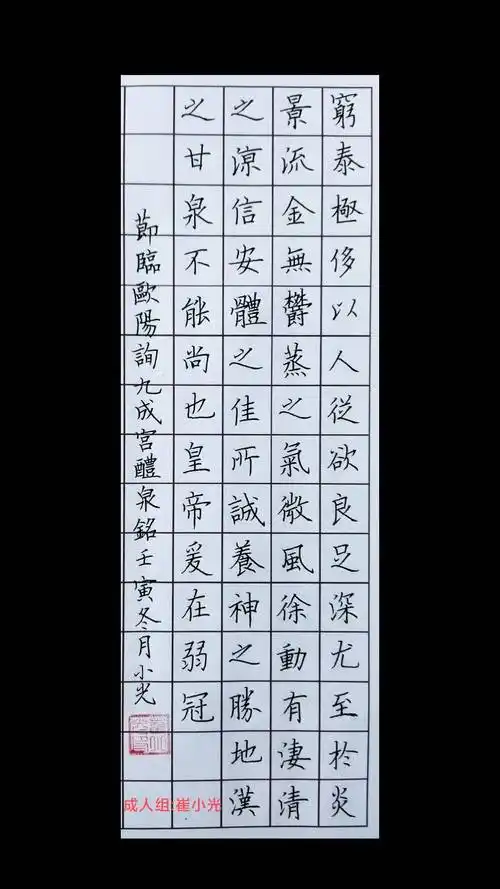 窮泰極侈以人從欲良足深尤至於炎
景流金無欝蒸之氣微風徐動有淒清
之涼信安體之佳所誠養神之勝地漢
之甘泉不能尚也皇帝爰在弱冠
節臨歐陽詢九成宮醴泉銘壬寅冬月小光
成人组:崔小光